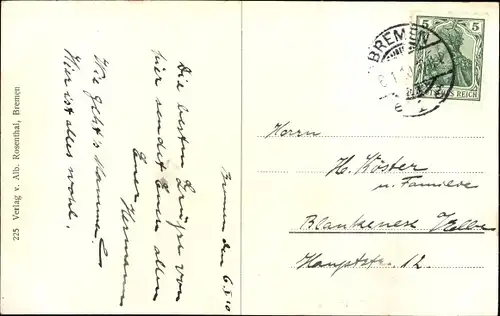 225 Verlag v. Alb. Rosenthal, Bremen
Bremen den 6.I.10
Die besten Grüße von
hier sendet Euch allen
Euer Hermann
Wie geht's Mamma?
Hier ist alles wohl.
BREMEN
5 5
DEUTSCHES REICH
Herrn
H. Köster
u. Familie
Blankenese
Hauptstr. 12